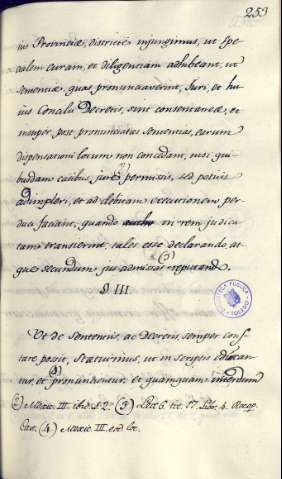 253
ius Provinciæ, districtè injungimus, ut spe
cialem curam, et diligentiam adhibeant, ut
sententiæ, quas pronunciaverint, Juri, et hu
ius Concilii Decretis, sint consentaneæ, et
insuper post pronunciatas sententias, earum
dispensationi locum non concedant, nisi qui
busdam casibus jure permissis, sed potius
adimpleri, et ad debitam executionem per
duci faciant, quando in rem judica
tam transierint, tales esse declarando, at
que secundum jus admissas reputando.
§ III.
Ut de Sententiis, ac Decretis, semper cons
tare possit, Statuimus, ut in scriptis
tur, et pronuncientur, et quamquam interdum
(2) Mexic. III. ibid. § 2. (3) Lib. 4.
(4) Mexic. III. eod.
BIBLIOTECA PUBLICA
TOLEDO